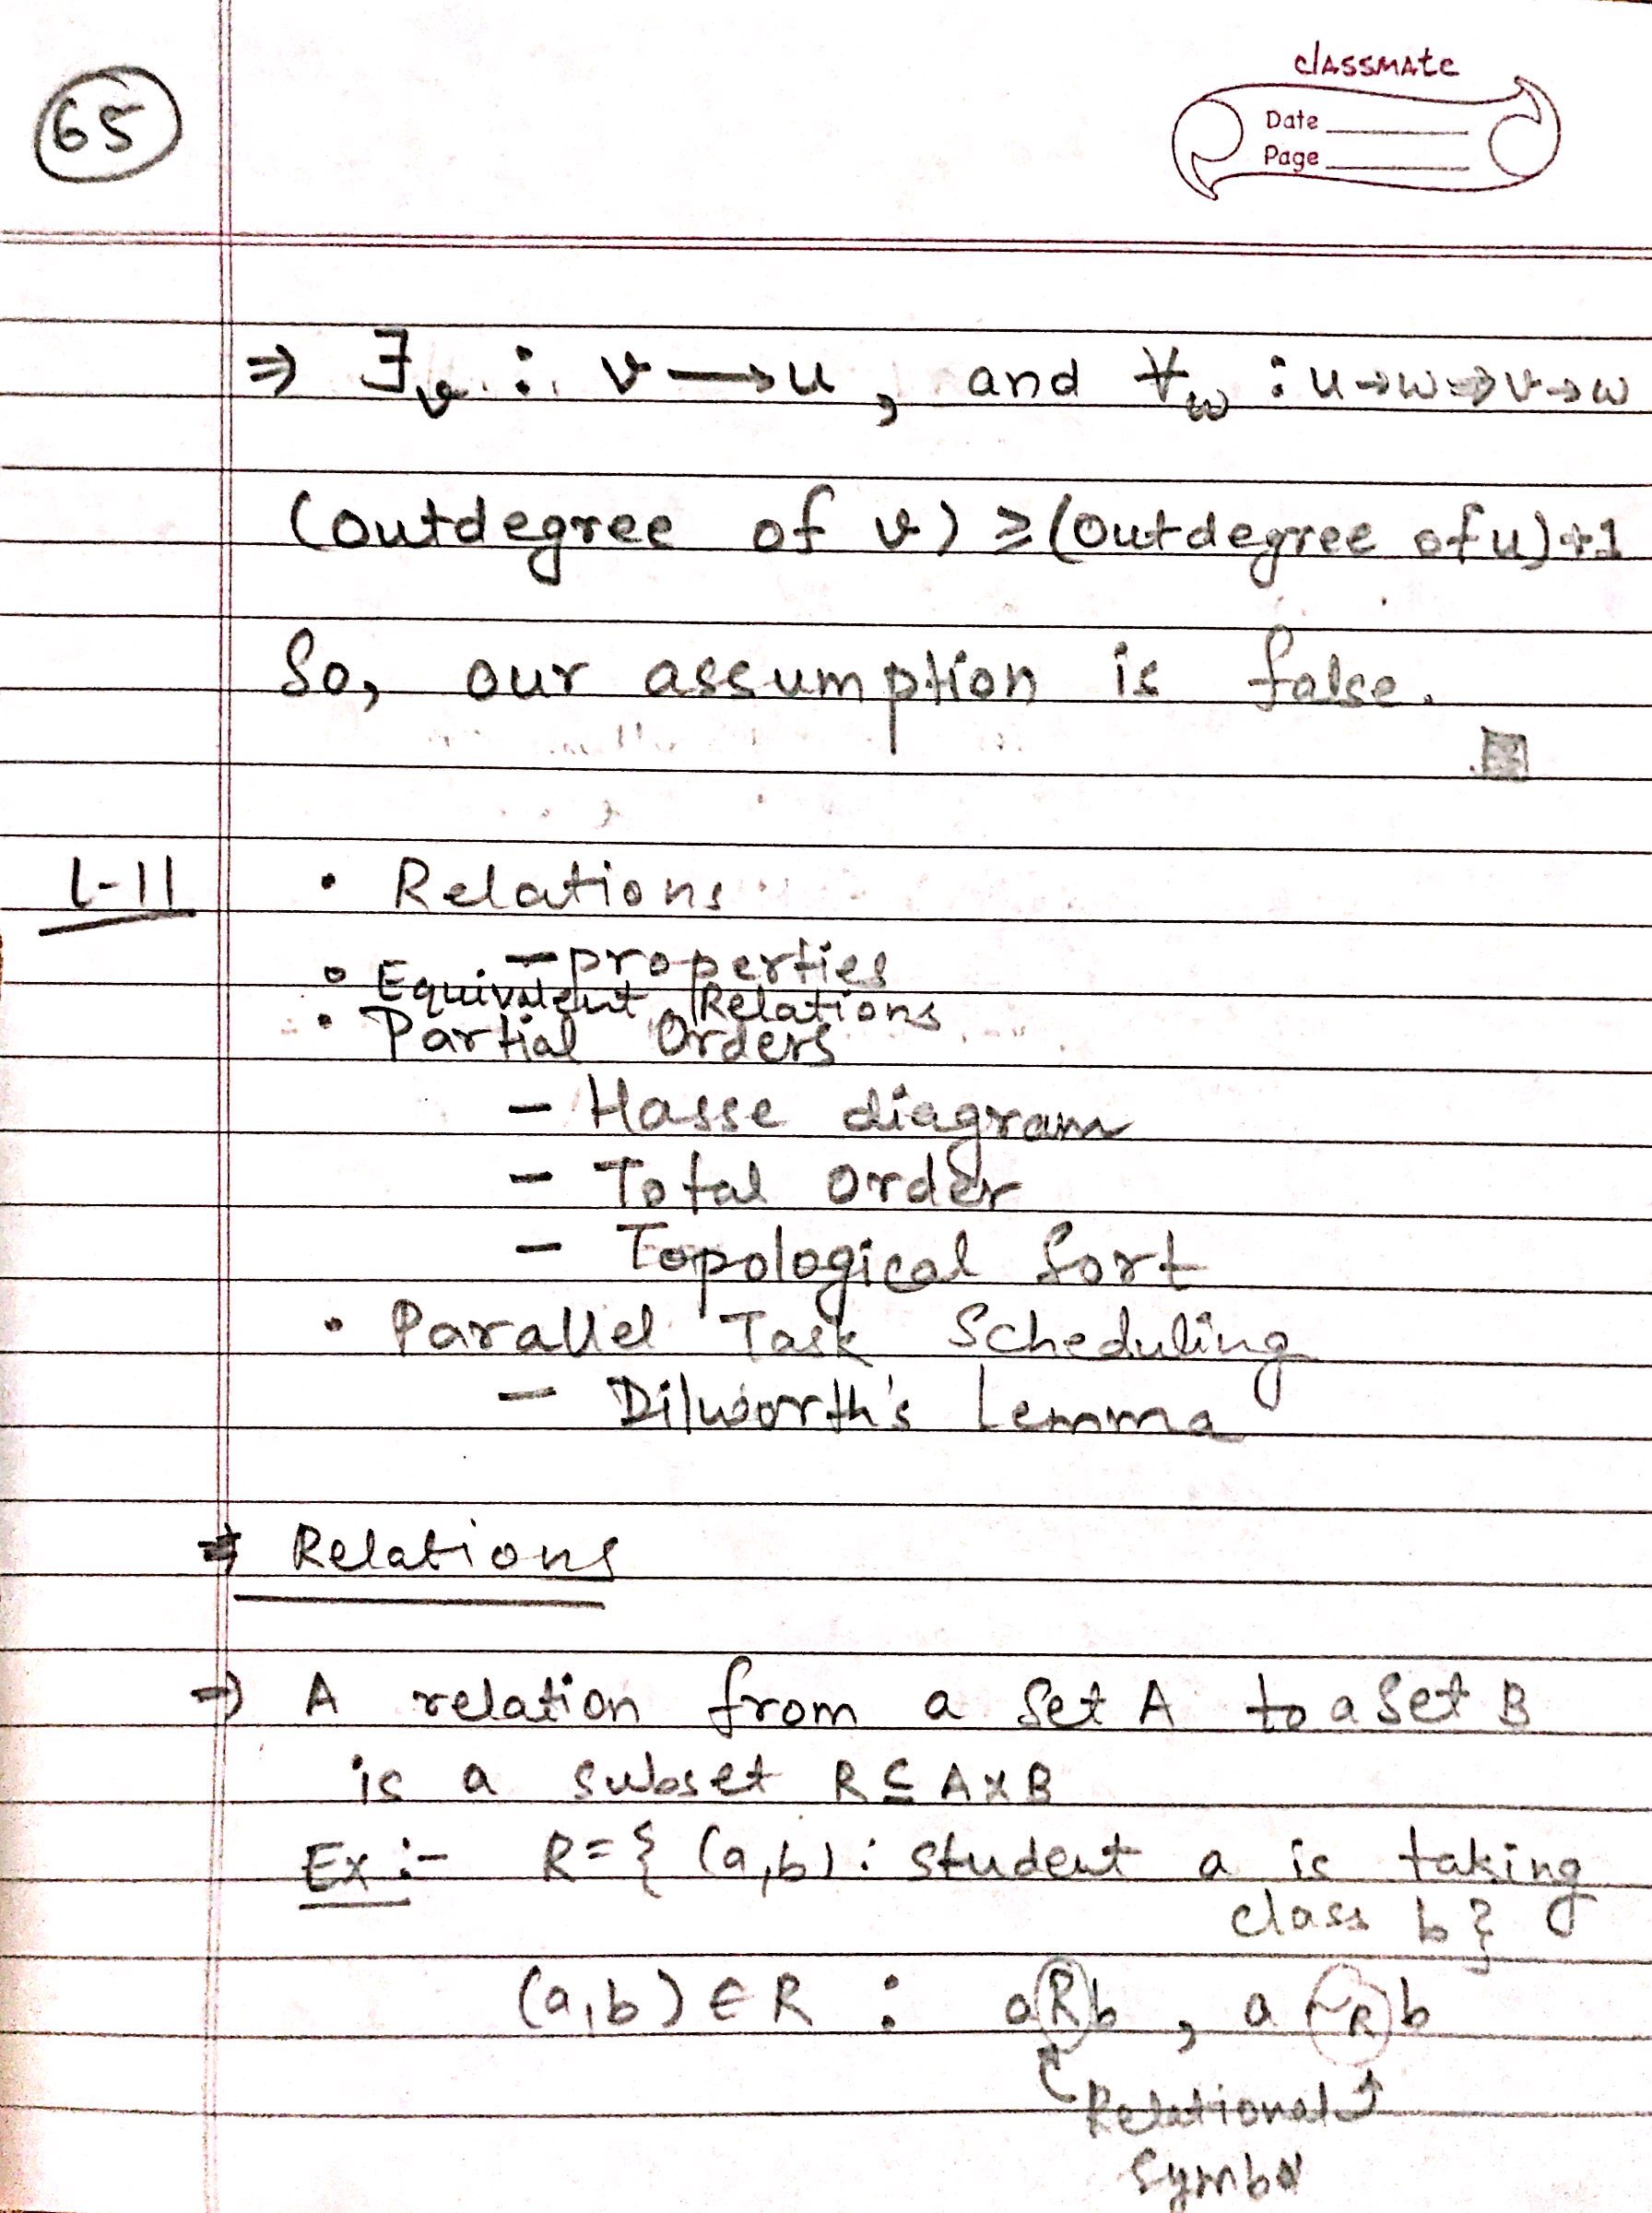 65
classmate
Date
Page
⇒ ∃v : v → u , and ∀w : u→w ⇒ v→w
(outdegree of v) ≥ (outdegree of u)+1
So, our assumption is false.
L-11
• Relations
- properties
• Equivalent Relations
• Partial Orders
- Hasse diagram
- Total order
- Topological Sort
• Parallel Task Scheduling
- Dilworth's Lemma
⇒ Relations
⇒ A relation from a Set A to a Set B
is a subset R ⊆ A×B
Ex :- R = { (a,b) : student a is taking
class b }
(a,b) ∈ R : aRb , a ~R b
Relational
Symbol